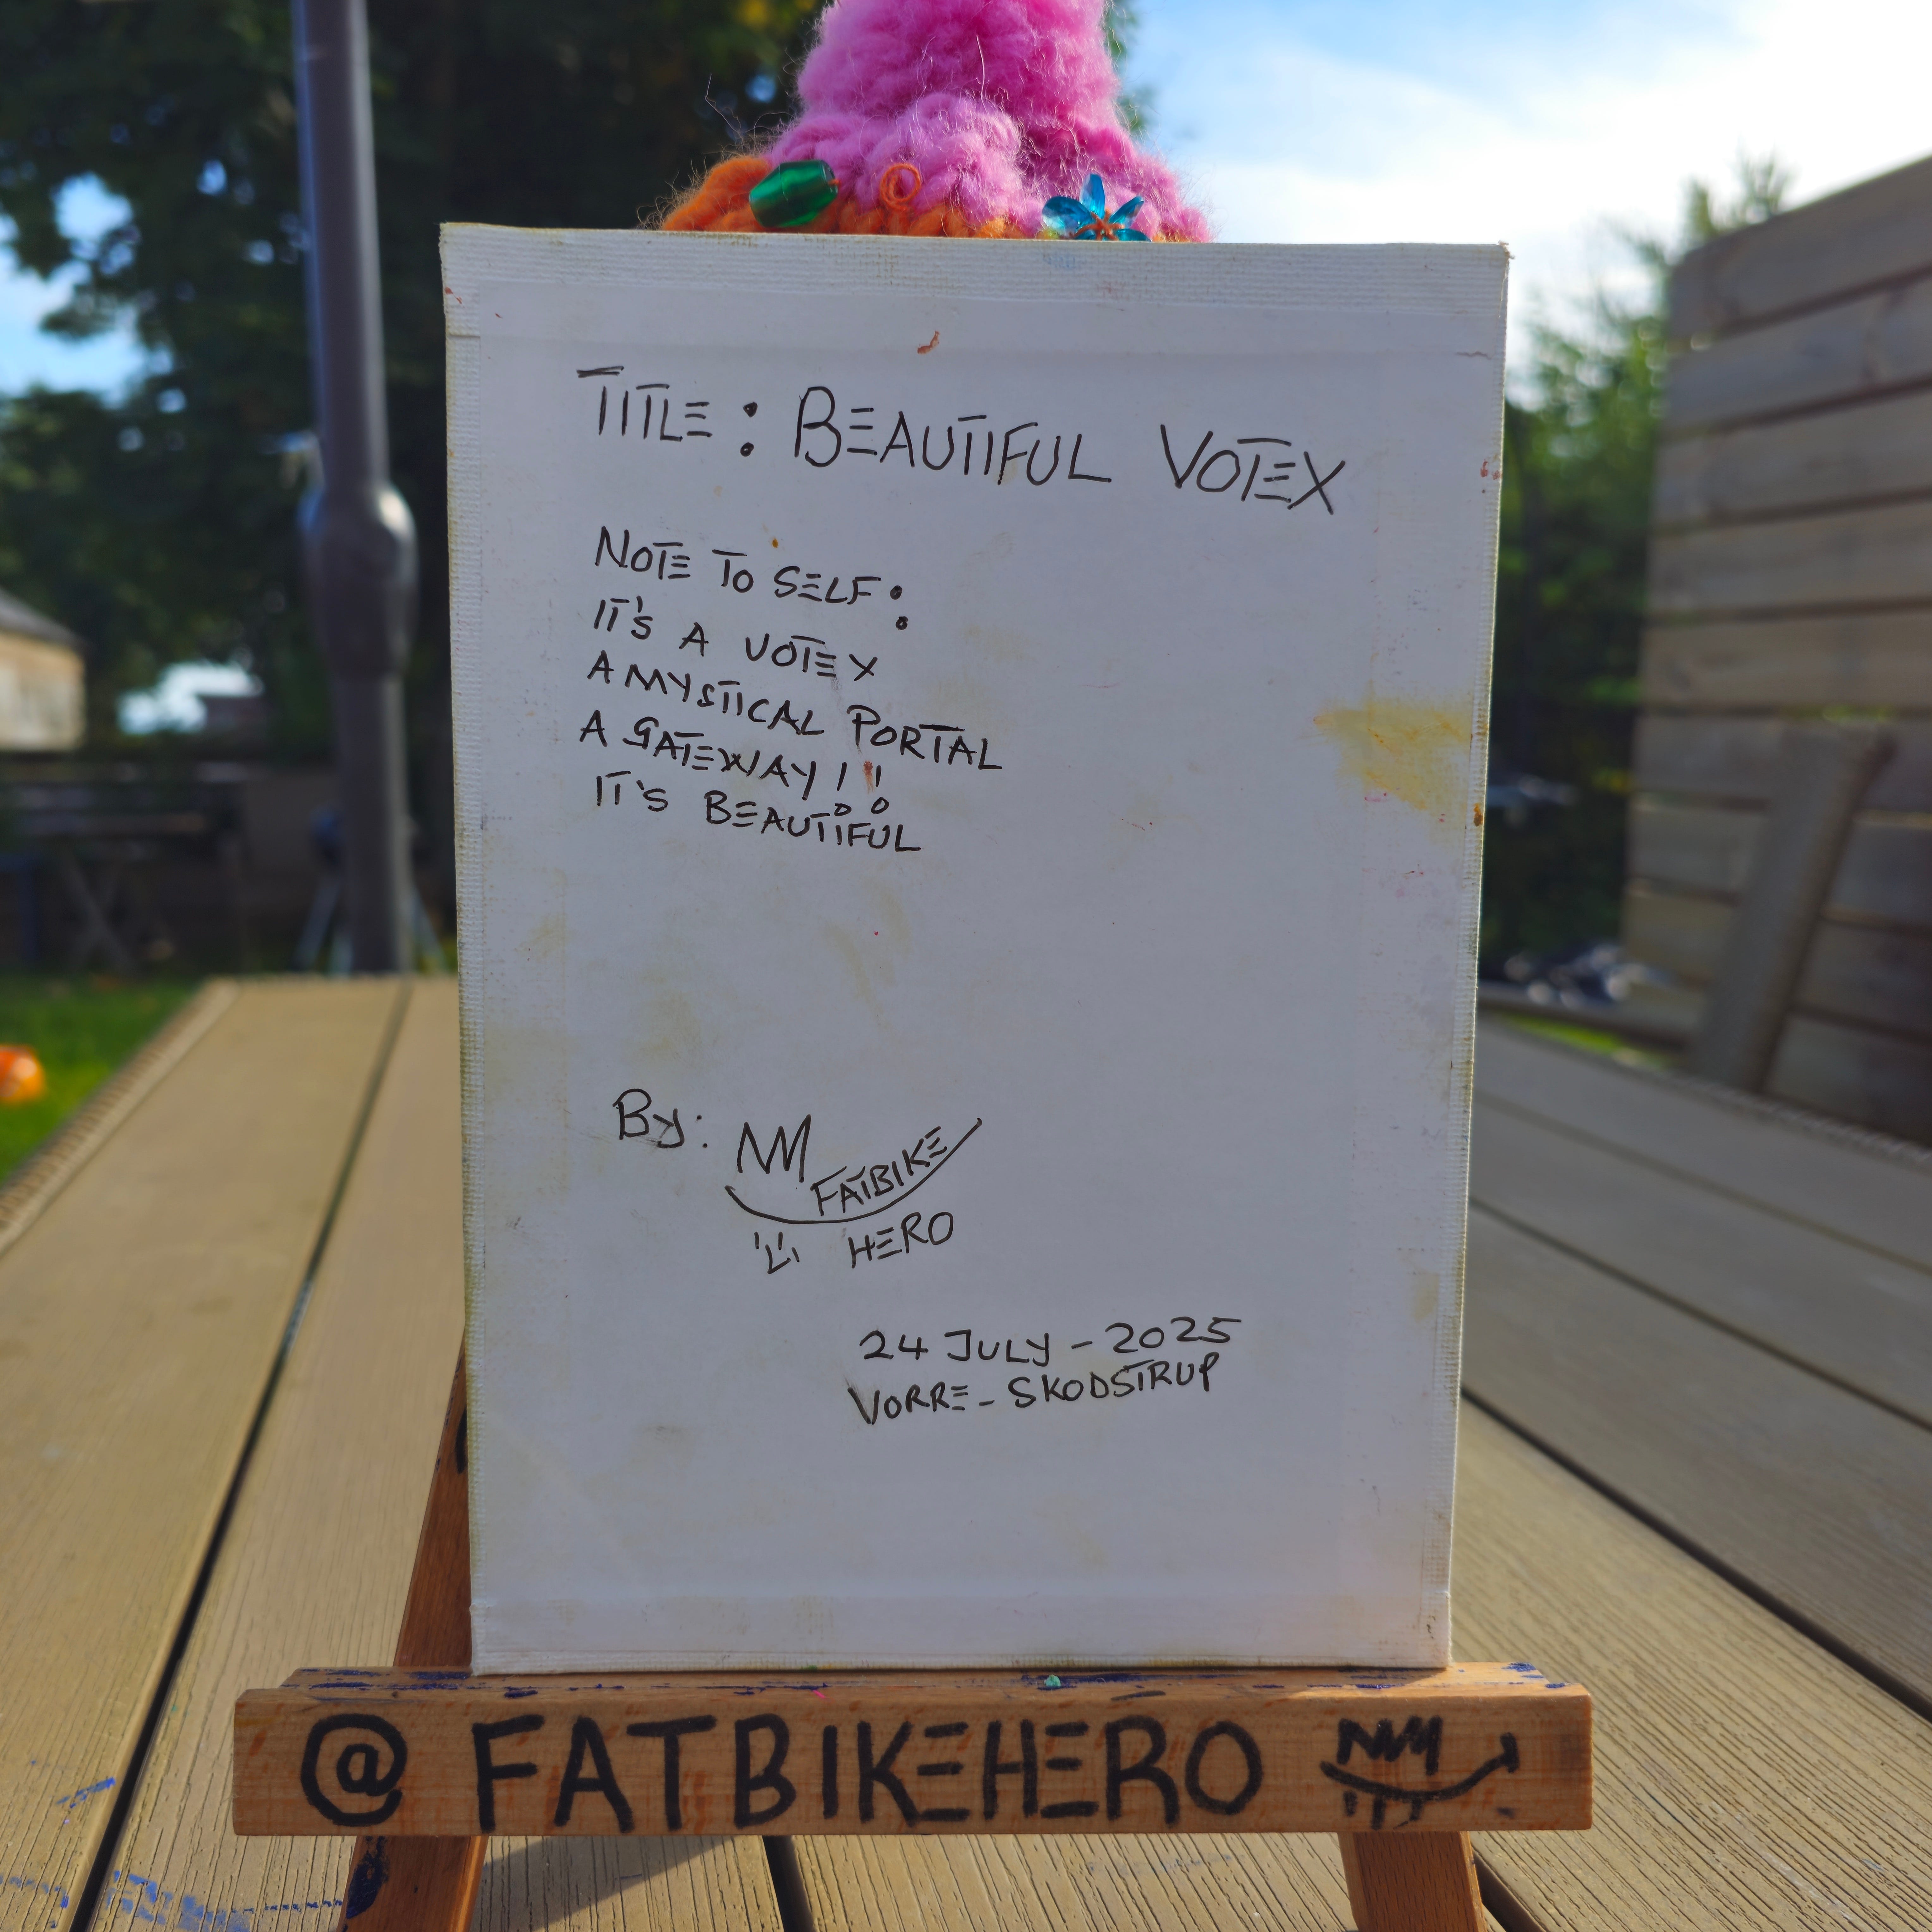 TITLE : BEAUTIFUL VOTEX
NOTE TO SELF :
IT'S A VOTEX
A MYSTICAL PORTAL
A GATEWAY !!
IT'S BEAUTIFUL
By:
FATBIKE
HERO
24 JULY - 2025
VORRE - SKODSTRUP
@FATBIKEHERO